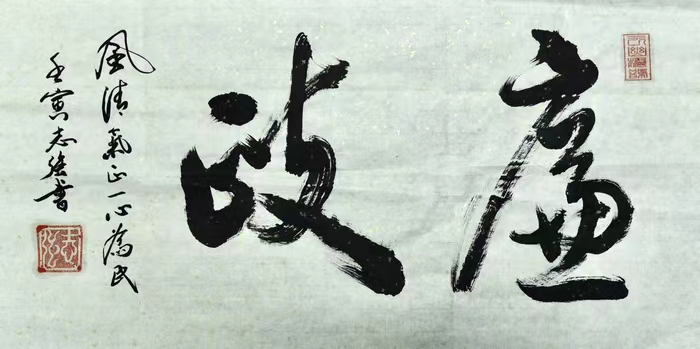 廉政
風清氣正一心為民
壬寅志强書